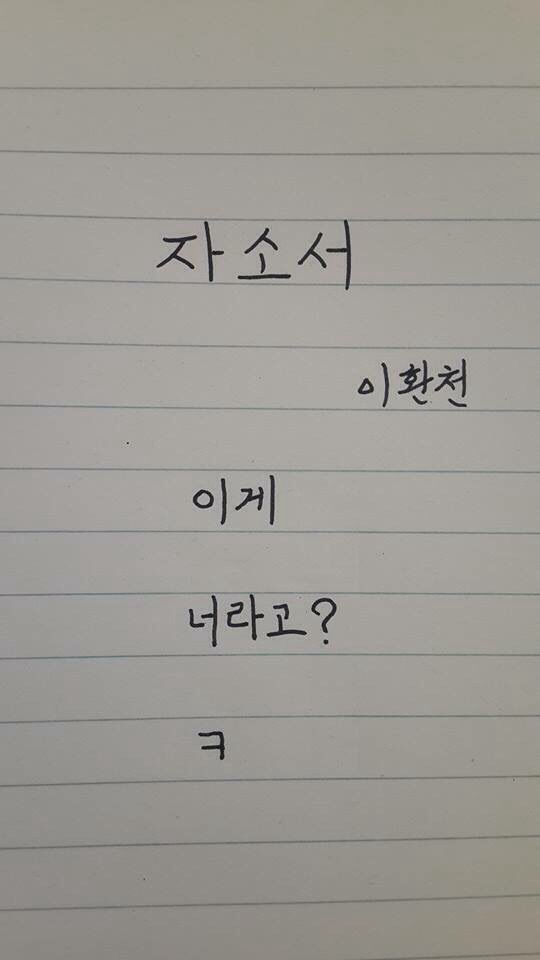 자소서
이환천
이게
너라고?
ㅋ